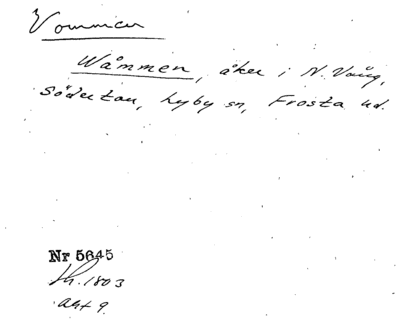 Vommen
Wåmmen, åker i N. Vång,
Södertou, Lyby sn, Frosta hd.
Nr 5645
Sk. 1803
akt 9.